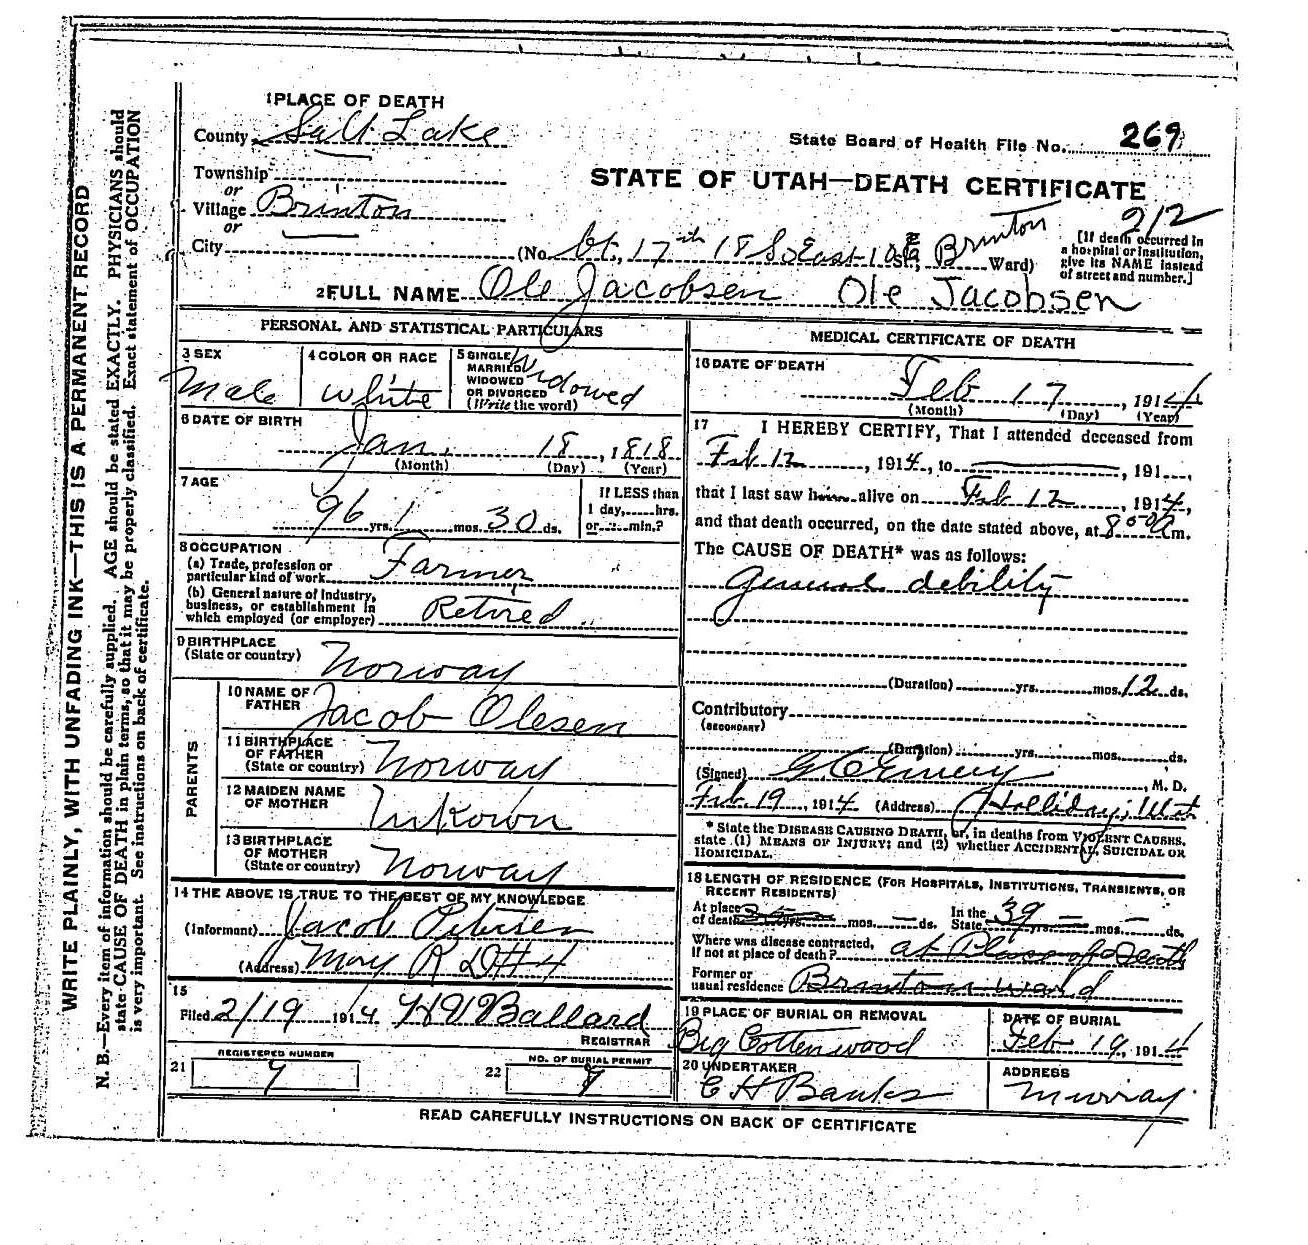 WRITE PLAINLY, WITH UNFADING INK—THIS IS A PERMANENT RECORD
N. B.—Every item of information should be carefully supplied. AGE should be stated EXACTLY. PHYSICIANS should
state CAUSE OF DEATH in plain terms, so that it may be properly classified. Exact statement of OCCUPATION
is very important. See instructions on back of certificate.
1 PLACE OF DEATH
County Salt Lake
State Board of Health File No. 269
Township
or
STATE OF UTAH—DEATH CERTIFICATE
Village Brinton
or
212
City (No. 17th 18 So East 10 St.; Brinton Ward)
[If death occurred in
a hospital or institution,
give its NAME instead
of street and number.]
2 FULL NAME Ole Jacobsen Ole Jacobsen
PERSONAL AND STATISTICAL PARTICULARS
3 SEX
Male
4 COLOR OR RACE
white
5 SINGLE
MARRIED
WIDOWED
OR DIVORCED
(Write the word)
Widowed
6 DATE OF BIRTH
Jan. 18, 1818
(Month) (Day) (Year)
7 AGE
96 yrs. 1 mos. 30 ds.
If LESS than
1 day, hrs.
or min.?
8 OCCUPATION
(a) Trade, profession or
particular kind of work Farmer
(b) General nature of Industry,
business, or establishment in
which employed (or employer) Retired
9 BIRTHPLACE
(State or country) Norway
PARENTS
10 NAME OF
FATHER Jacob Olesen
11 BIRTHPLACE
OF FATHER
(State or country) Norway
12 MAIDEN NAME
OF MOTHER Unkown
13 BIRTHPLACE
OF MOTHER
(State or country) Norway
14 THE ABOVE IS TRUE TO THE BEST OF MY KNOWLEDGE
(Informant) Jacob Petersen
(Address) Mury R D #4
15
Filed 2/19 1914 H W Ballard
REGISTRAR
REGISTERED NUMBER
21 9
NO. OF BURIAL PERMIT
22 9
MEDICAL CERTIFICATE OF DEATH
16 DATE OF DEATH
Feb 17, 1914
(Month) (Day) (Year)
17 I HEREBY CERTIFY, That I attended deceased from
Feb 12, 1914, to , 191
that I last saw him alive on Feb 12, 1914,
and that death occurred, on the date stated above, at 8 50 a m.
The CAUSE OF DEATH* was as follows:
general debility
(Duration) yrs. mos. 12 ds.
Contributory
(SECONDARY)
(Duration) yrs. mos. ds.
(Signed) M. D.
Feb 19, 1914 (Address) Holliday, Utah
* State the DISEASE CAUSING DEATH, or, in deaths from VIOLENT CAUSES,
state (1) MEANS OF INJURY; and (2) whether ACCIDENTAL, SUICIDAL OR
HOMICIDAL.
18 LENGTH OF RESIDENCE (FOR HOSPITALS, INSTITUTIONS, TRANSIENTS, OR
RECENT RESIDENTS)
At place
of death yrs. mos. — ds.
In the
State 39 yrs. — mos. — ds.
Where was disease contracted,
if not at place of death? at Place of Death
Former or
usual residence Brinton ward
19 PLACE OF BURIAL OR REMOVAL
Big Cottenwood
DATE OF BURIAL
Feb 19, 1914
20 UNDERTAKER
C H Banks
ADDRESS
Murray
READ CAREFULLY INSTRUCTIONS ON BACK OF CERTIFICATE